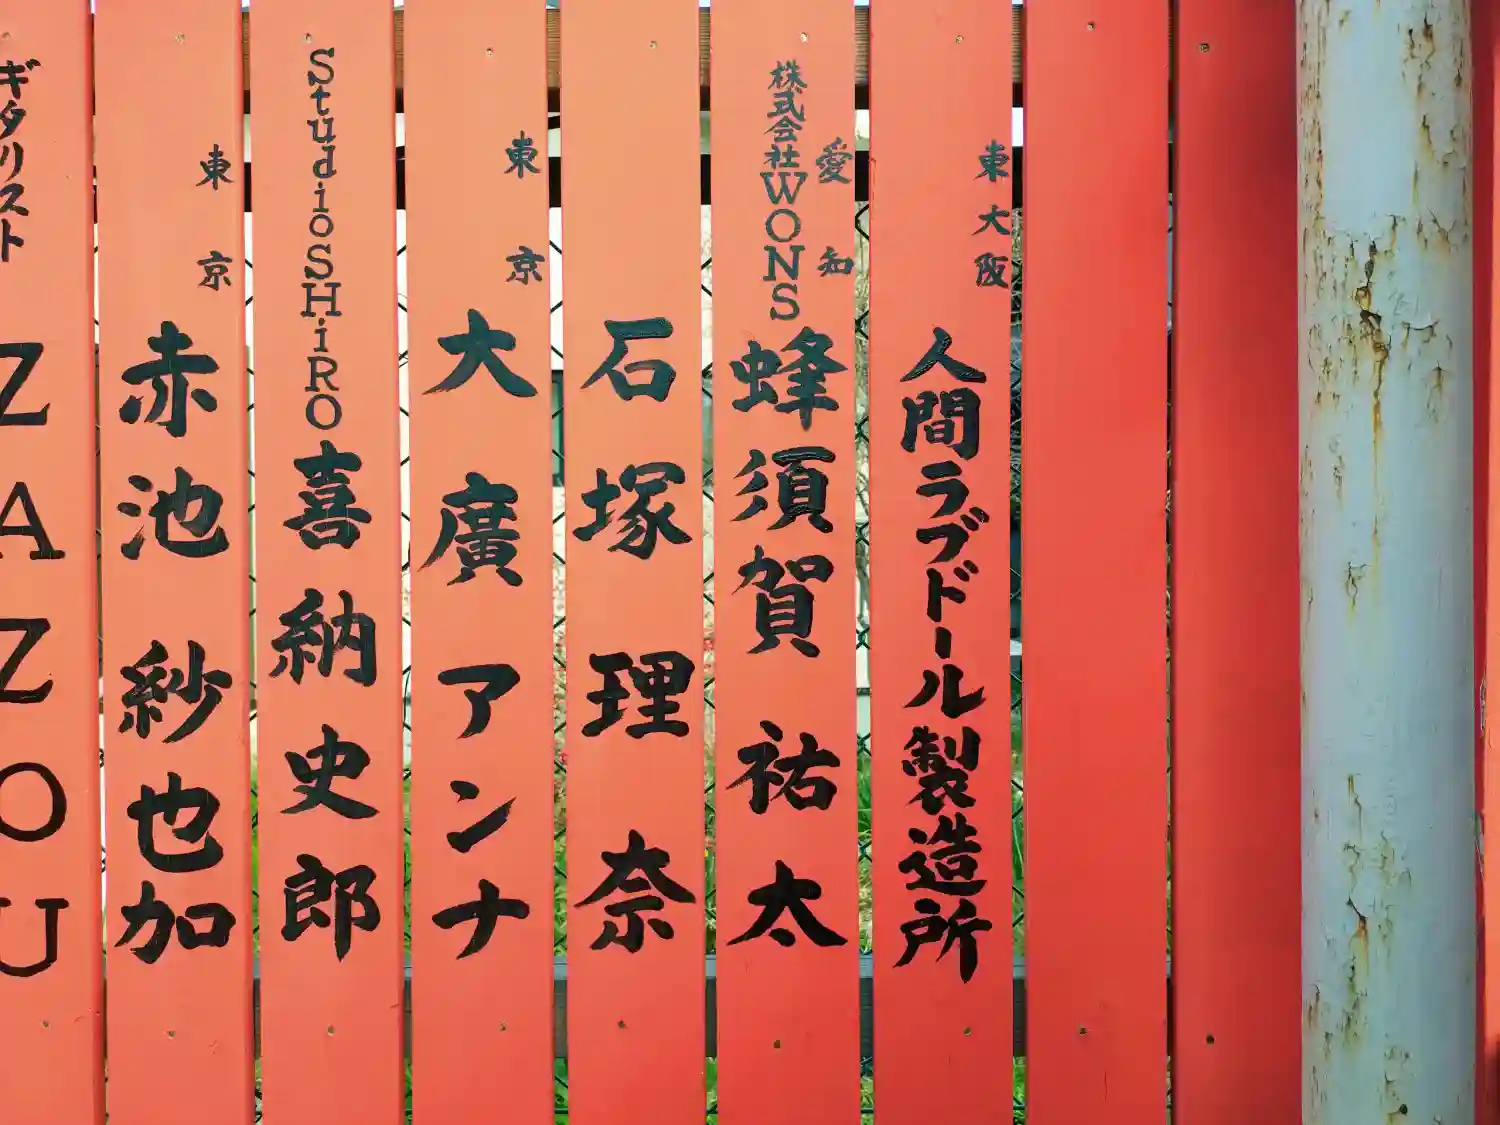 東大阪
人間ラブドール製造所
愛知
株式会社WONS
蜂須賀祐太
石塚理奈
東京
大廣アンナ
StudioSHiRO
喜納史郎
東京
赤池紗也加
ギタリスト
ZAZOU